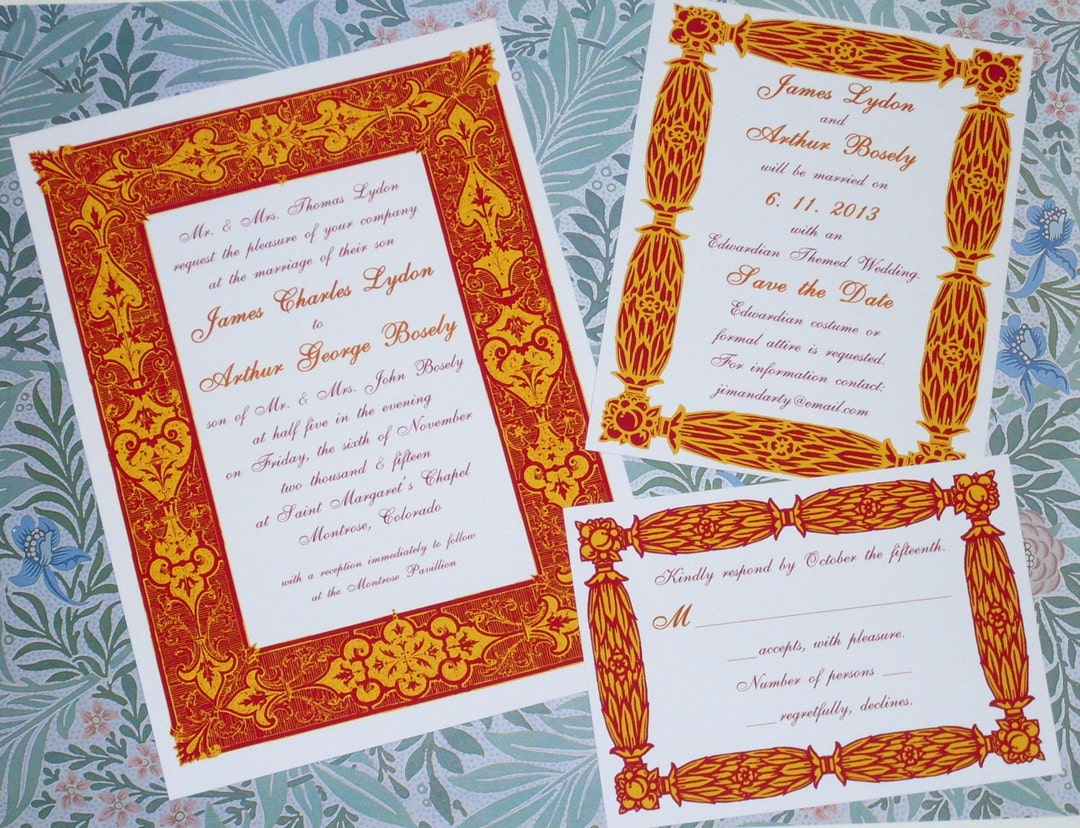 Mr. & Mrs. Thomas Lydon
request the pleasure of your company
at the marriage of their son
James Charles Lydon
to
Arthur George Bosely
son of Mr. & Mrs. John Bosely
at half five in the evening
on Friday, the sixth of November
two thousand & fifteen
at Saint Margaret's Chapel
Montrose, Colorado
with a reception immediately to follow
at the Montrose Pavillion
James Lydon
and
Arthur Bosely
will be married on
6. 11. 2013
with an
Edwardian Themed Wedding.
Save the Date
Edwardian costume or
formal attire is requested.
For information contact:
jimandarty@email.com
Kindly respond by October the fifteenth.
M
accepts, with pleasure.
Number of persons
regretfully, declines.